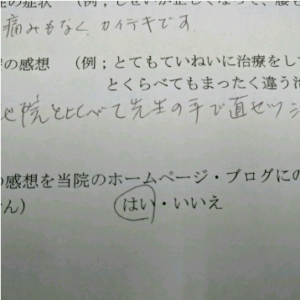 の症状 (例；しせいが正しくなって、腰も
痛みもなく、カイテキです
の感想 (例；とてもていねいに治療をして
とくらべてもまったく違う治
他院と比べて先生の手で直セツシ
の感想を当院のホームページ・ブログにの
せん) はい・いいえ